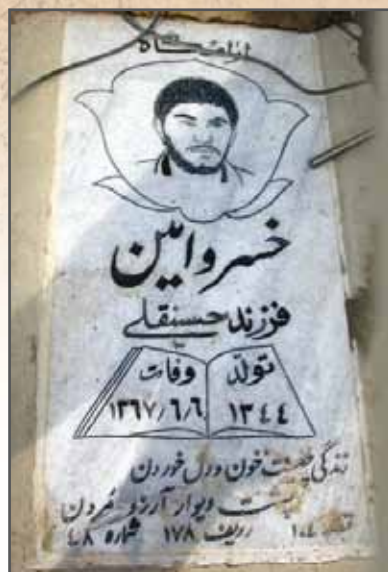 آرامگاه
خسرو امین
فرزند حسنقلی
تولد وفات
۱۳۴۴ ۱۳۶۷/۶/۶
زندگی چیست خون دل خوردن
پشت دیوار آرزو مردن
قطعه ۱۰۴ ردیف ۱۷۸ شماره ۴۸